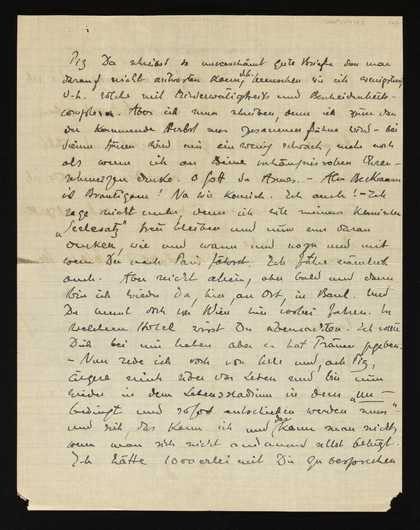 Pig Du schreibst so unverschämt gute Briefe dass man
darauf nicht antworten kann, wie ich wenigstens
d.h. solche mit Minderwertigkeits und Bescheidenheits-
complexen. Aber ich muss schreiben, denn ich
der kommende Herbst uns zusammenführen wird - bei
wird mir ein wenig schwach, mehr noch
als wenn ich an Deine verhängnisvollen
schmerzen denke. O Gott du Armes. - Also Beckmann
ist Bräutigam! Na wie komisch. Ich auch! - Ich
sage nicht mehr, denn ich will meinem komischen
treu bleiben und nur eins daran
denken, wie und wann und wozu und mit
wem Du nach Paris fährst. Ich fahre nämlich
auch. Aber nicht allein, aber bald und dann
bin ich wieder da, hier, an Ort, in Basel. Und
Du kannst doch von Wien hier vorbei fahren. In
welchem Hotel wirst Du übernachten. Ich
Dich bei mir haben aber es hat Tränen gegeben.
- Nun rede ich noch von und, ach Pig,
ärgere mich über das Leben und bin nun
wieder in dem Lebensstadium in dem „un-
bedingt und sofort entschieden werden muss"
und sich das kann ich und das kann man nicht,
wenn man sich nicht andauernd selbst belügt.
Ich hätte 1000erlei mit Dir zu besprechen